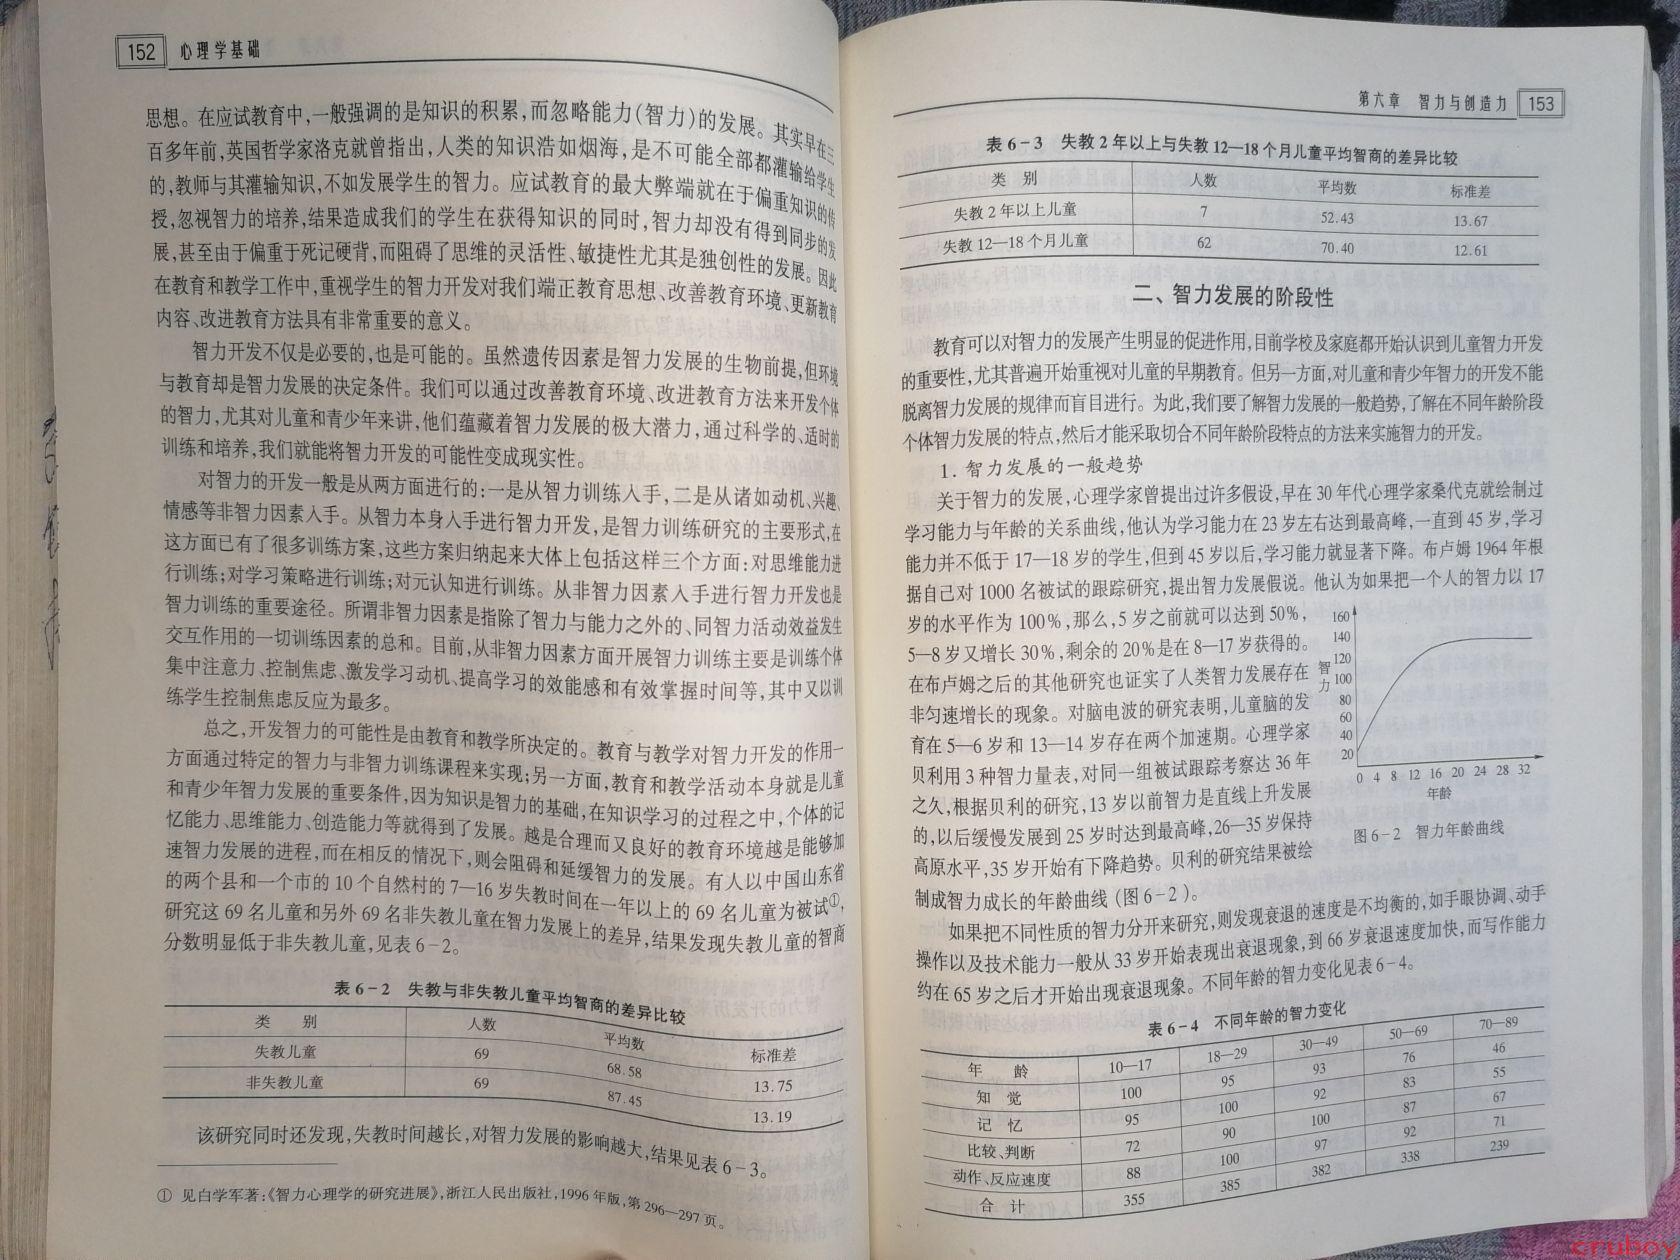 152 心理学基础
思想。在应试教育中,一般强调的是知识的积累,而忽略能力(智力)的发展。其实早在三
百多年前,英国哲学家洛克就曾指出,人类的知识浩如烟海,是不可能全部都灌输给学生
的,教师与其灌输知识,不如发展学生的智力。应试教育的最大弊端就在于偏重知识的传
授,忽视智力的培养,结果造成我们的学生在获得知识的同时,智力却没有得到同步的发
展,甚至由于偏重于死记硬背,而阻碍了思维的灵活性、敏捷性尤其是独创性的发展。因此
在教育和教学工作中,重视学生的智力开发对我们端正教育思想、改善教育环境、更新教育
内容、改进教育方法具有非常重要的意义。
智力开发不仅是必要的,也是可能的。虽然遗传因素是智力发展的生物前提,但环境
与教育却是智力发展的决定条件。我们可以通过改善教育环境、改进教育方法来开发个体
的智力,尤其对儿童和青少年来讲,他们蕴藏着智力发展的极大潜力,通过科学的、适时的
训练和培养,我们就能将智力开发的可能性变成现实性。
对智力的开发一般是从两方面进行的:一是从智力训练入手,二是从诸如动机、兴趣、
情感等非智力因素入手。从智力本身入手进行智力开发,是智力训练研究的主要形式,在
这方面已有了很多训练方案,这些方案归纳起来大体上包括这样三个方面:对思维能力进
行训练;对学习策略进行训练;对元认知进行训练。从非智力因素入手进行智力开发也是
智力训练的重要途径。所谓非智力因素是指除了智力与能力之外的、同智力活动效益发生
交互作用的一切训练因素的总和。目前,从非智力因素方面开展智力训练主要是训练个体
集中注意力、控制焦虑、激发学习动机、提高学习的效能感和有效掌握时间等,其中又以训
练学生控制焦虑反应为最多。
总之,开发智力的可能性是由教育和教学所决定的。教育与教学对智力开发的作用一
方面通过特定的智力与非智力训练课程来实现;另一方面,教育和教学活动本身就是儿童
和青少年智力发展的重要条件,因为知识是智力的基础,在知识学习的过程之中,个体的记
忆能力、思维能力、创造能力等就得到了发展。越是合理而又良好的教育环境越是能够加
速智力发展的进程,而在相反的情况下,则会阻碍和延缓智力的发展。有人以中国山东省
的两个县和一个市的10个自然村的7—16岁失教时间在一年以上的69名儿童为被试①,
研究这69名儿童和另外69名非失教儿童在智力发展上的差异,结果发现失教儿童的智商
分数明显低于非失教儿童,见表6-2。
表6-2 失教与非失教儿童平均智商的差异比较
类 别 人数 平均数 标准差
失教儿童 69 68.58 13.75
非失教儿童 69 87.45 13.19
该研究同时还发现,失教时间越长,对智力发展的影响越大,结果见表6-3。
① 见白学军著:《智力心理学的研究进展》,浙江人民出版社,1996年版,第296—297页。
第六章 智力与创造力 153
表6-3 失教2年以上与失教12—18个月儿童平均智商的差异比较
类 别 人数 平均数 标准差
失教2年以上儿童 7 52.43 13.67
失教12—18个月儿童 62 70.40 12.61
二、智力发展的阶段性
教育可以对智力的发展产生明显的促进作用,目前学校及家庭都开始认识到儿童智力开发
的重要性,尤其普遍开始重视对儿童的早期教育。但另一方面,对儿童和青少年智力的开发不能
脱离智力发展的规律而盲目进行。为此,我们要了解智力发展的一般趋势,了解在不同年龄阶段
个体智力发展的特点,然后才能采取切合不同年龄阶段特点的方法来实施智力的开发。
1. 智力发展的一般趋势
关于智力的发展,心理学家曾提出过许多假设,早在30年代心理学家桑代克就绘制过
学习能力与年龄的关系曲线,他认为学习能力在23岁左右达到最高峰,一直到45岁,学习
能力并不低于17—18岁的学生,但到45岁以后,学习能力就显著下降。布卢姆1964年根
据自己对1000名被试的跟踪研究,提出智力发展假说。他认为如果把一个人的智力以17
岁的水平作为100%,那么,5岁之前就可以达到50%,
5—8岁又增长30%,剩余的20%是在8—17岁获得的。
在布卢姆之后的其他研究也证实了人类智力发展存在
非匀速增长的现象。对脑电波的研究表明,儿童脑的发
育在5—6岁和13—14岁存在两个加速期。心理学家
贝利用3种智力量表,对同一组被试跟踪考察达36年
之久,根据贝利的研究,13岁以前智力是直线上升发展
的,以后缓慢发展到25岁时达到最高峰,26—35岁保持
高原水平,35岁开始有下降趋势。贝利的研究结果被绘
制成智力成长的年龄曲线(图6-2)。
160
140
120
100
80
60
40
20
智力
0 4 8 12 16 20 24 28 32
年龄
图6-2 智力年龄曲线
如果把不同性质的智力分开来研究,则发现衰退的速度是不均衡的,如手眼协调、动手
操作以及技术能力一般从33岁开始表现出衰退现象,到66岁衰退速度加快,而写作能力
约在65岁之后才开始出现衰退现象。不同年龄的智力变化见表6-4。
表6-4 不同年龄的智力变化
年 龄 10—17 18—29 30—49 50—69 70—89
知 觉 100 95 93 76 46
记 忆 95 100 92 83 55
比较、判断 72 90 100 87 67
动作、反应速度 88 100 97 92 71
合 计 355 385 382 338 239
cruboy